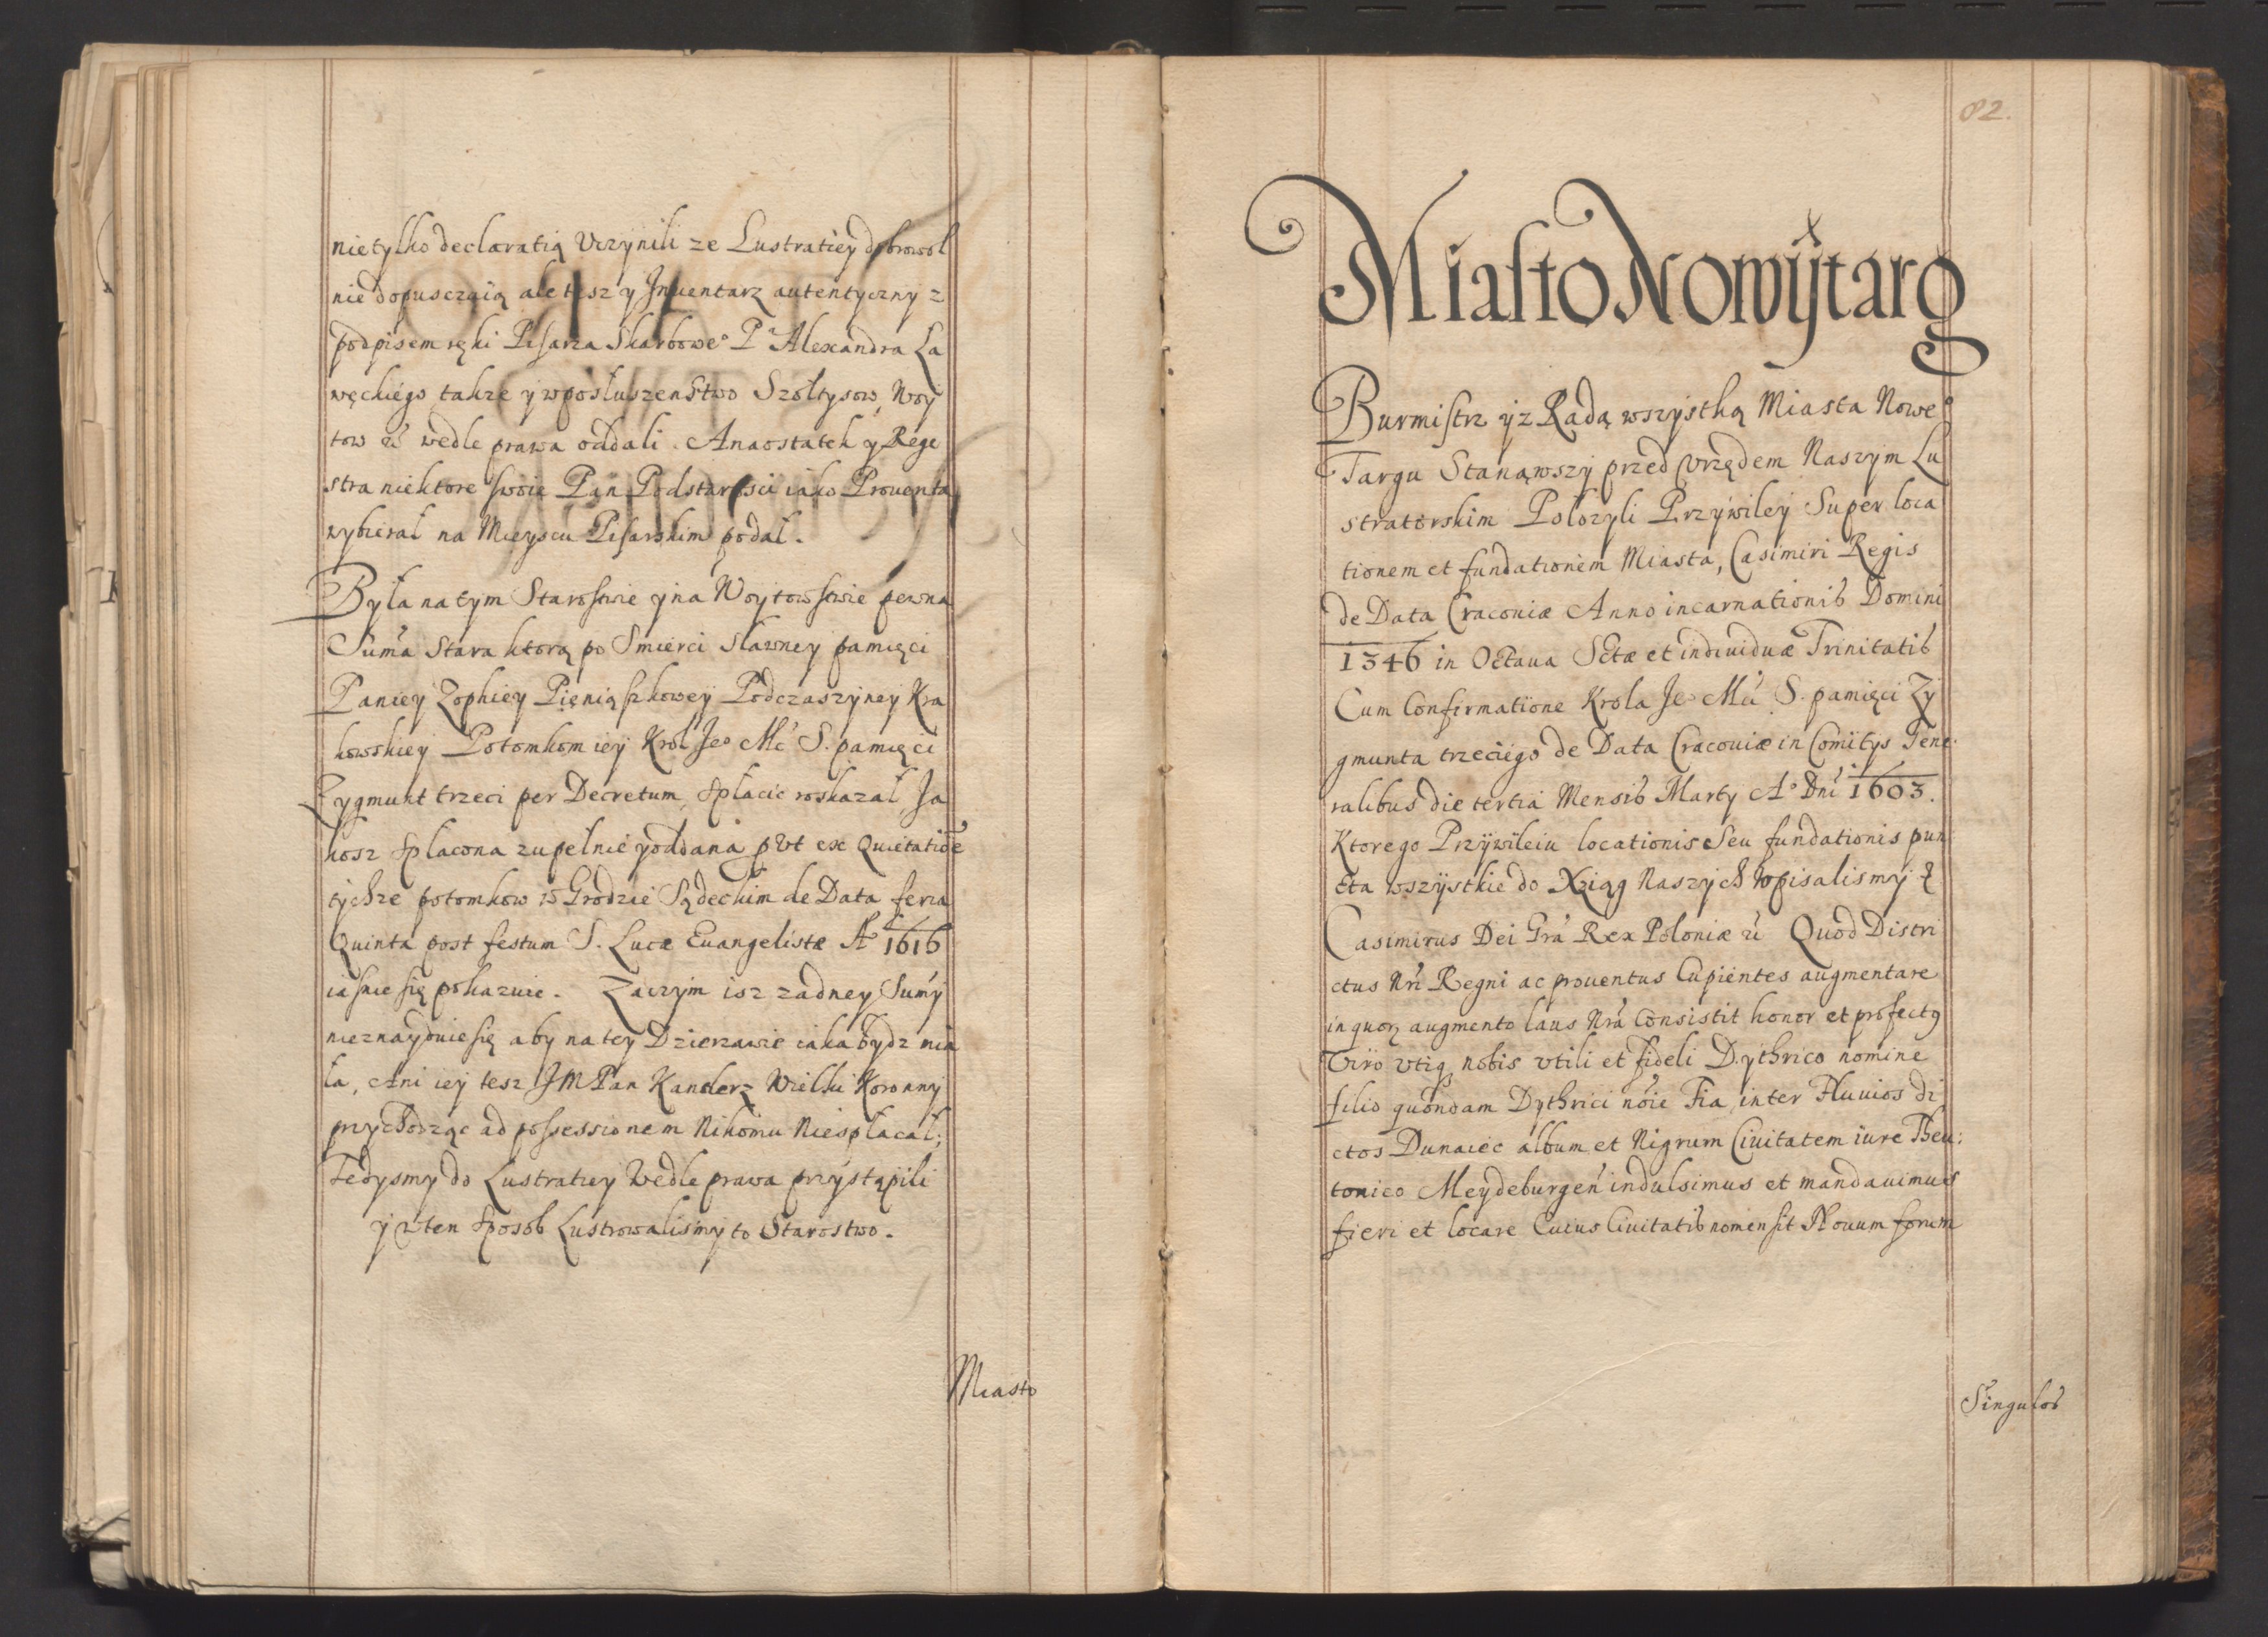 nie tylko declaratią Vczynili ze Lustratiey dobrowol
nie dopusczaią ale tesz y Inuentarz autentyczny z
podpisem ręki Pisarza Skarbowe° P Alexandra La
węckiégo takze y wposłuszenstwo Szołtysow, Woy
tow &c wedle prawa oddali. Anaostatek y Rege
stra niektore swoie Pan Podstarosci iako Prouenta
wybierał na Mieyscu Pisarskim podał.
Była na tym Starostwie y na Woytowstwie pewna
Suma stara ktorą po Smierci sławney pamięci
Paniey Zophiey Pieniąszkowey Podczaszyney Kra
kowskiey Potomkom iey Krol Je° Mć S. pamięci
Zygmunt trzeci per Decretum, spłacic roskazał, Ja
kosz spłacona zupełnie y oddana put ex Quietatioe
tychze potomkow w Grodzie Sądeckim de Data feria
Quinta post festum S. Lucæ Euangelistæ A° 1616
iasnie się pokazuie. Zaczym isz zadney Sumy
nieznayduie się aby na tey Dzierzawie iaka bydz mia
ła, Ani iey tesz JM Pan Kanclerz Wielki Koronny
przychodząc ad possessionem Nikomu Niespłacał;
Tedysmy do Lustratiey Wedle prawa przystąpili
y w ten sposob Lustrowalismy to Starostwo.
Miasto
82.
Miasto Nowytarg
Burmistrz y z Radą wszystką Miasta Nowe°
Targu Stanąwszy przed Vrzędem Naszym Lu
stratorskim Polozyli Przywiley Super loca
tionem et fundationem Miasta, Casimiri Regis
de Data Cracouiæ Anno incarnationis Domini
1346 in Octaua Sctæ et indiuiduæ Trinitatis
Cum Confirmatione Krola Je° Mci S. pamięci Zy
gmunta trzeciégo de Data Cracouiæ in Comitys Gene
ralibus die tertia Mensis Marty A° Dni 1603.
Ktorego Przywileiu locationis Seu fundationis pun
cta wszystkie do Xziąg Naszych Wpisalismy
Casimirus Dei Gra Rex Poloniæ &c Quod Distri
ctus Nri Regni ac prouentus Cupientes augmentare
in quorz augmento laus Nra Consistit honor et profectus
Viro vtiq nobis vtili et fideli Dythrico nomine
filio quondam Dythrici noie Fia, inter Fluuios di
ctos Dunaiec album et Nigrum Ciuitatem iure Theu:
tonico Meydeburgen indulsimus et mandauimus
fieri et locare Cuius Ciuitatis nomen sit Nouum forum
Singulos